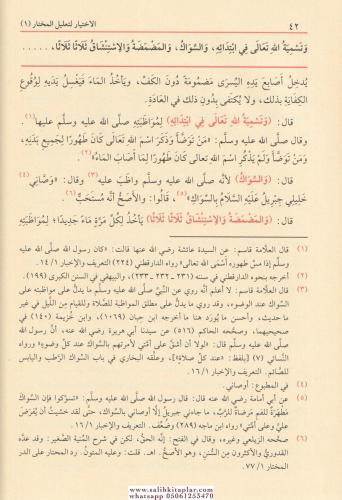 ٤٢ الاختيار لتعليل المختار (١)
وَتَسْمِيَةُ اللهِ تَعَالَى فِي ابْتِدَائِهِ، وَالسِّوَاكُ، وَالْمَضْمَضَةُ وَالِاسْتِنْشَاقُ ثَلَاثًا ثَلَاثًا، .....
يُدخِلُ أصَابِعَ يَدِهِ اليُسرَى مَضمُومَةً دُونَ الكَفِّ، وَيَأخُذُ المَاءَ فَيَغْسِلُ يَدَيهِ لِوُقُوعِ
الكِفَايَةِ بذلكَ، وَلا يُكتَفَى بِدُونِ ذلكَ في العَادَةِ.
قال: (وَتَسْمِيَةُ اللهِ تَعَالَى فِي ابْتِدَائِهِ) لِمُوَاظَبَتِهِ صلَّى الله عليه وسلَّم عليها(١).
وقال صلَّى الله عليه وسلَّم: «مَن تَوَضَّأَ وَذَكَرَ اسْمَ اللهِ تَعَالَى كَانَ طَهُورًا لِجَمِيعِ بَدَنِهِ،
وَمَنْ تَوَضَّأَ وَلَمْ يَذْكُرِ اسْمَ اللهِ تَعَالَى كَانَ طَهُورًا لِمَا أَصَابَ المَاءُ»(٢).
قال: (وَالسِّوَاكُ) لأنَّه صلَّى الله عليه وسلَّم واظَبَ عليه(٣) وقال: «وَصَّانِي(٤)
خَلِيلِي جِبْرِيلُ عَلَيْهِ السَّلَامُ بِالسِّوَاكِ»(٥)، قَالُوا: وَالأصَحُّ أنَّه مُستَحَبٌّ(٦).
قال: (وَالْمَضْمَضَةُ وَالِاسْتِنْشَاقُ ثَلَاثًا ثَلَاثًا) يَأخُذُ لِكُلِّ مَرَّةٍ مَاءً جَدِيدًا؛ لِمُوَاظَبَتِهِ
(١) قال العلَّامة قاسم: عن السيدة عائشة رضي الله عنها قالت: «كان رسول الله صلى الله عليه
وسلَّم إذا مسَّ طهوره أسمى الله تعالى» رواه الدارقطني (٢٢٤) التعريف والإخبار ١٤/١.
(٢) أخرجه بنحوه الدارقطني في سننه (٢٣١ - ٢٣٢ - ٢٣٣)، والبيهقي في السنن الكبرى (١٩٩).
(٣) قال العلَّامة قاسم: لا أعلم أنَّه روي عن النَّبيِّ صلَّى الله عليه وسلَّم ما يدلُّ على مواظبته على
السواك عند الوضوء، وقد روي ما يدلُّ على مطلق المواظبة للصَّلاة وللقيام من اللَّيل في غير
ما حديث، وأحسن ما يُورَد هنا ما أخرجه ابن حِبان (١٠٦٩)، وابن خُزيمة (١٤٠) في
صحيحيهما، وصحَّحه الحاكم (٥١٦) عن سيدنا أبي هريرة رضي الله عنه، أنَّ رسول الله
صلَّى الله عليه وسلَّم قال: «لولا أن أشقَّ على أمَّتي لأمرتهم بالسِّواك عند كلِّ وضوء» ورواه
النَّسائي (٧) [بلفظ: «عند كلِّ صلاة»]، وعلَّقه البخاري في باب السواك الرَّطب واليابس
للصَّائم. التعريف والإخبار ١٦/١.
(٤) في المطبوع: أوصاني.
(٥) عن أبي أمامة رضي الله عنه: قال رسول الله صلَّى الله عليه وسلَّم: «تسوَّكوا فإن السِّواكَ
مَطهَرَةٌ للفمِ مَرضاةٌ للرَّبِّ، ما جاءني جبريلُ إلا أوصاني بالسِّواكِ، حتَّى لقد خشيتُ أن يُفرَضَ
عليَّ وعلى أمَّتي» رواه ابن ماجه (٢٨٩) وضعف. التعريف والإخبار ١٦/١.
(٦) صحَّحه الزيلعي وغيره، وقال في الفتح: إنَّه الحقُّ، لكن في شرح المُنية الصَّغير: وقد عدَّه
القدوريُّ والأكثرون من السُّنن، وهو الأصحُّ. اهـ. قلت: وعليه المتونُ. رد المحتار على الدر
المختار ٧٧/١.
www.salihkitaplar.com
whatsapp 05061253470